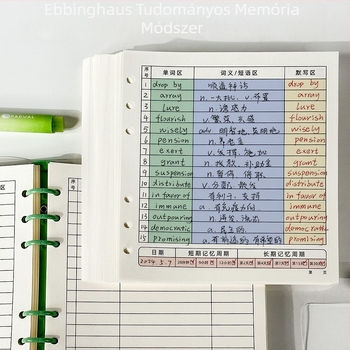 Ebbinghaus Tudományos Memória
Módszer
序号 单词区 词义/短语区 默写区
1 drop by 顺道拜访 drop by
2 array n. array
3 lure n. 诱惑力 lure
4 flourish v. 繁荣, flourish
5 wisely adv. 明智地, wisely
6 pension n. 养老金 pension
7 exert v. 发挥, 施加 exert
8 grant n. 拨款, 补助金 grant
9 suspension n. suspension
10 distribute v. 分配, 散发 distribute
11 in favor of 有利于, 支持 in favor of
12 immune a. immune
13 outpouring n. outpouring
14 democratic a. 民主的 democratic
15 promising a. 有前途的, 有希望的 promising
日期 短期记忆周期 长期记忆周期
2024.5.9
第 页